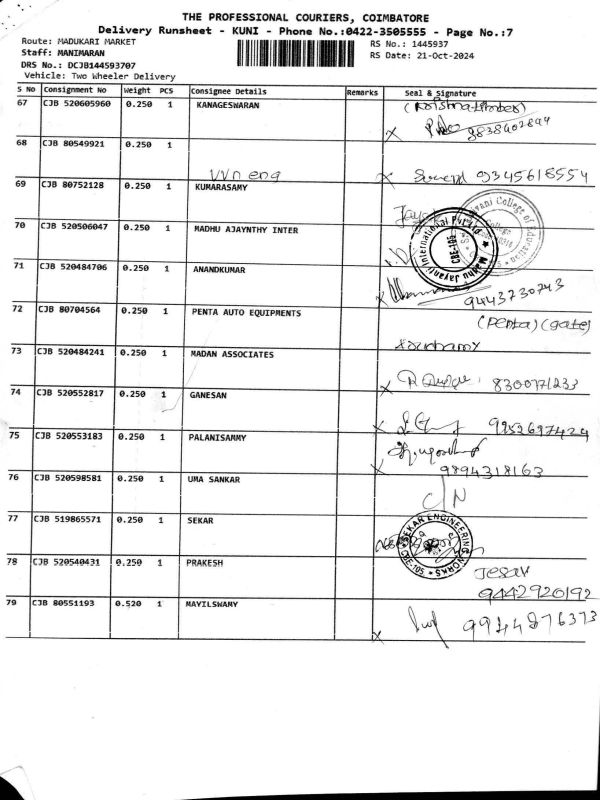 THE PROFESSIONAL COURIERS, COIMBATORE
Delivery Runsheet - KUNI - Phone No.:0422-3505555 - Page No.:7
Route: MADUKARI MARKET
RS No.: 1445937
Staff: MANIMARAN
RS Date: 21-Oct-2024
DRS No.: DCJB144593707
Vehicle: Two Wheeler Delivery
S No Consignment No Weight PCS Consignee Details Remarks Seal & Signature
67 CJB 520605960 0.250 1 KANAGESWARAN
68 CJB 80549921 0.250 1
vvn eng 9345616554
69 CJB 80752128 0.250 1 KUMARASAMY
70 CJB 520506047 0.250 1 MADHU AJAYNTHY INTER
Madhu Jayanti International Pvt Ltd
CBE-105
College of Education
71 CJB 520484706 0.250 1 ANANDKUMAR
9443730743
72 CJB 80704564 0.250 1 PENTA AUTO EQUIPMENTS
(Penta) (gate)
73 CJB 520484241 0.250 1 MADAN ASSOCIATES
8300771233
74 CJB 520552817 0.250 1 GANESAN
9952697424
75 CJB 520553183 0.250 1 PALANISAMMY
9894318163
76 CJB 520598581 0.250 1 UMA SANKAR
C/N
77 CJB 519865571 0.250 1 SEKAR
SEKAR ENGINEERING WORKS
CBE-105
78 CJB 520540431 0.250 1 PRAKESH
9442920192
79 CJB 80551193 0.520 1 MAYILSWAMY
9944876373